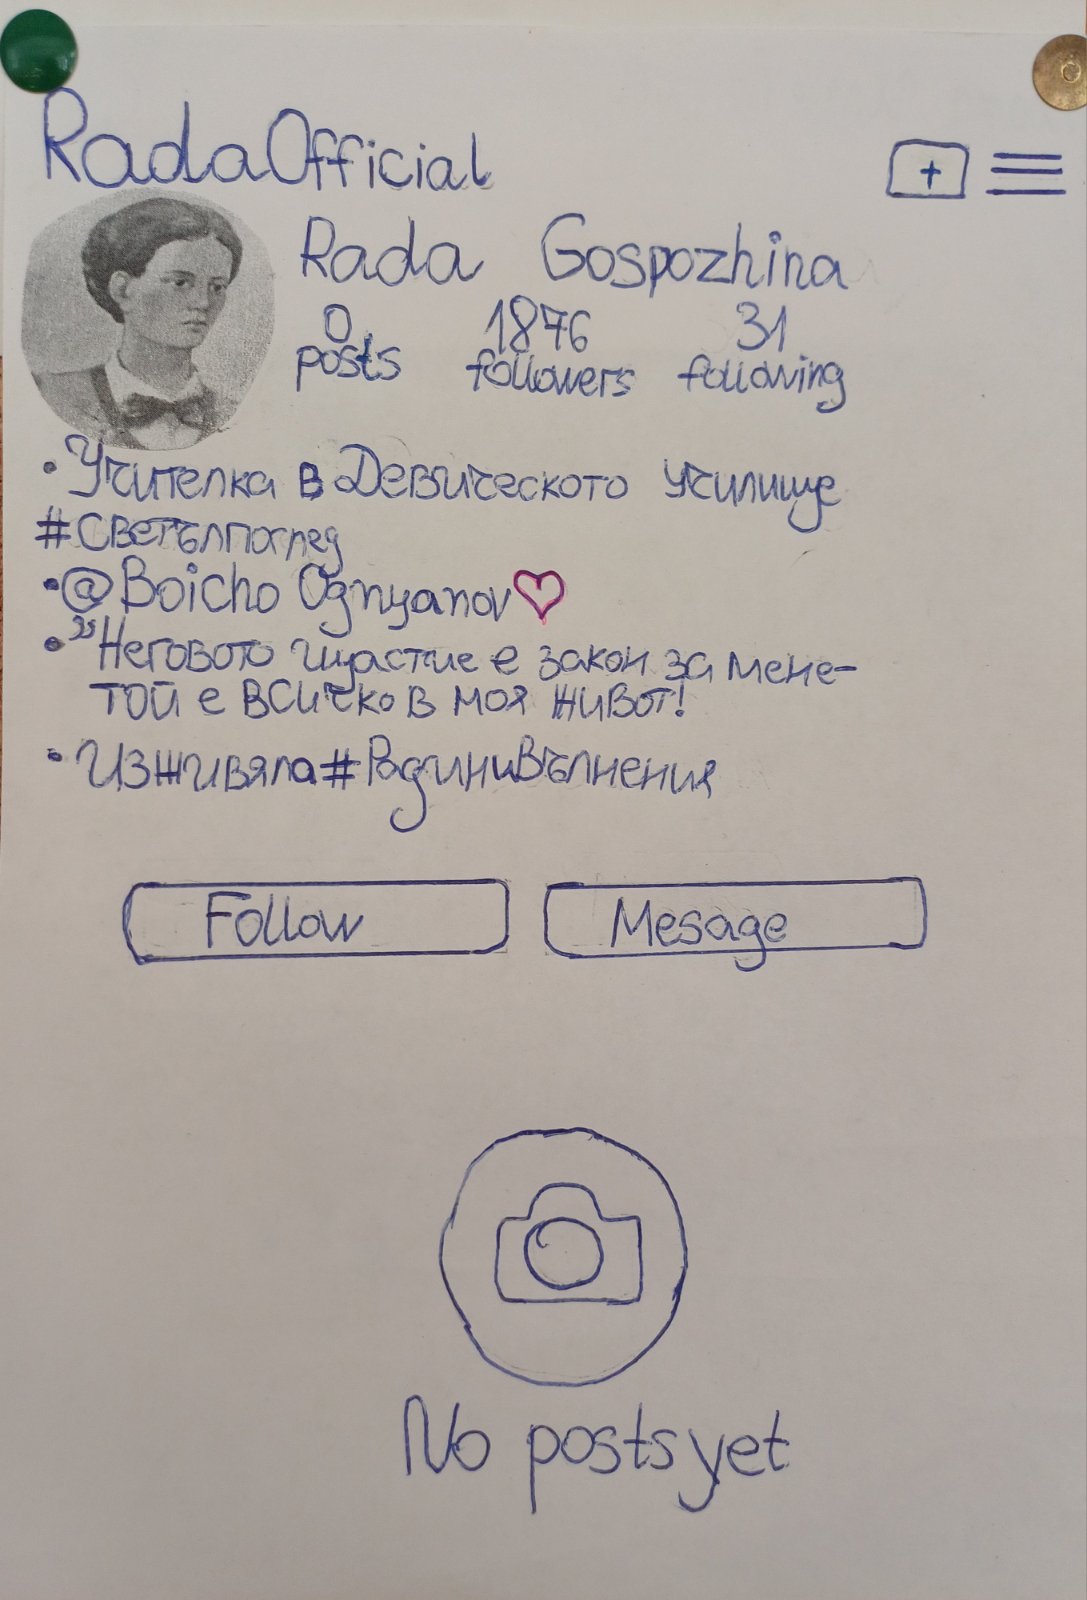 RadaOfficial
+
Rada Gospozhina
0 1876 31
posts followers following
• Учителка в Девическото училище
#Светълпоглед
• @Boicho Ognyanov
• "Неговото щастие е закон за мене-
той е всичко в моя живот!
• Изживяла #РадиниВълнения
Follow Mesage
No posts yet